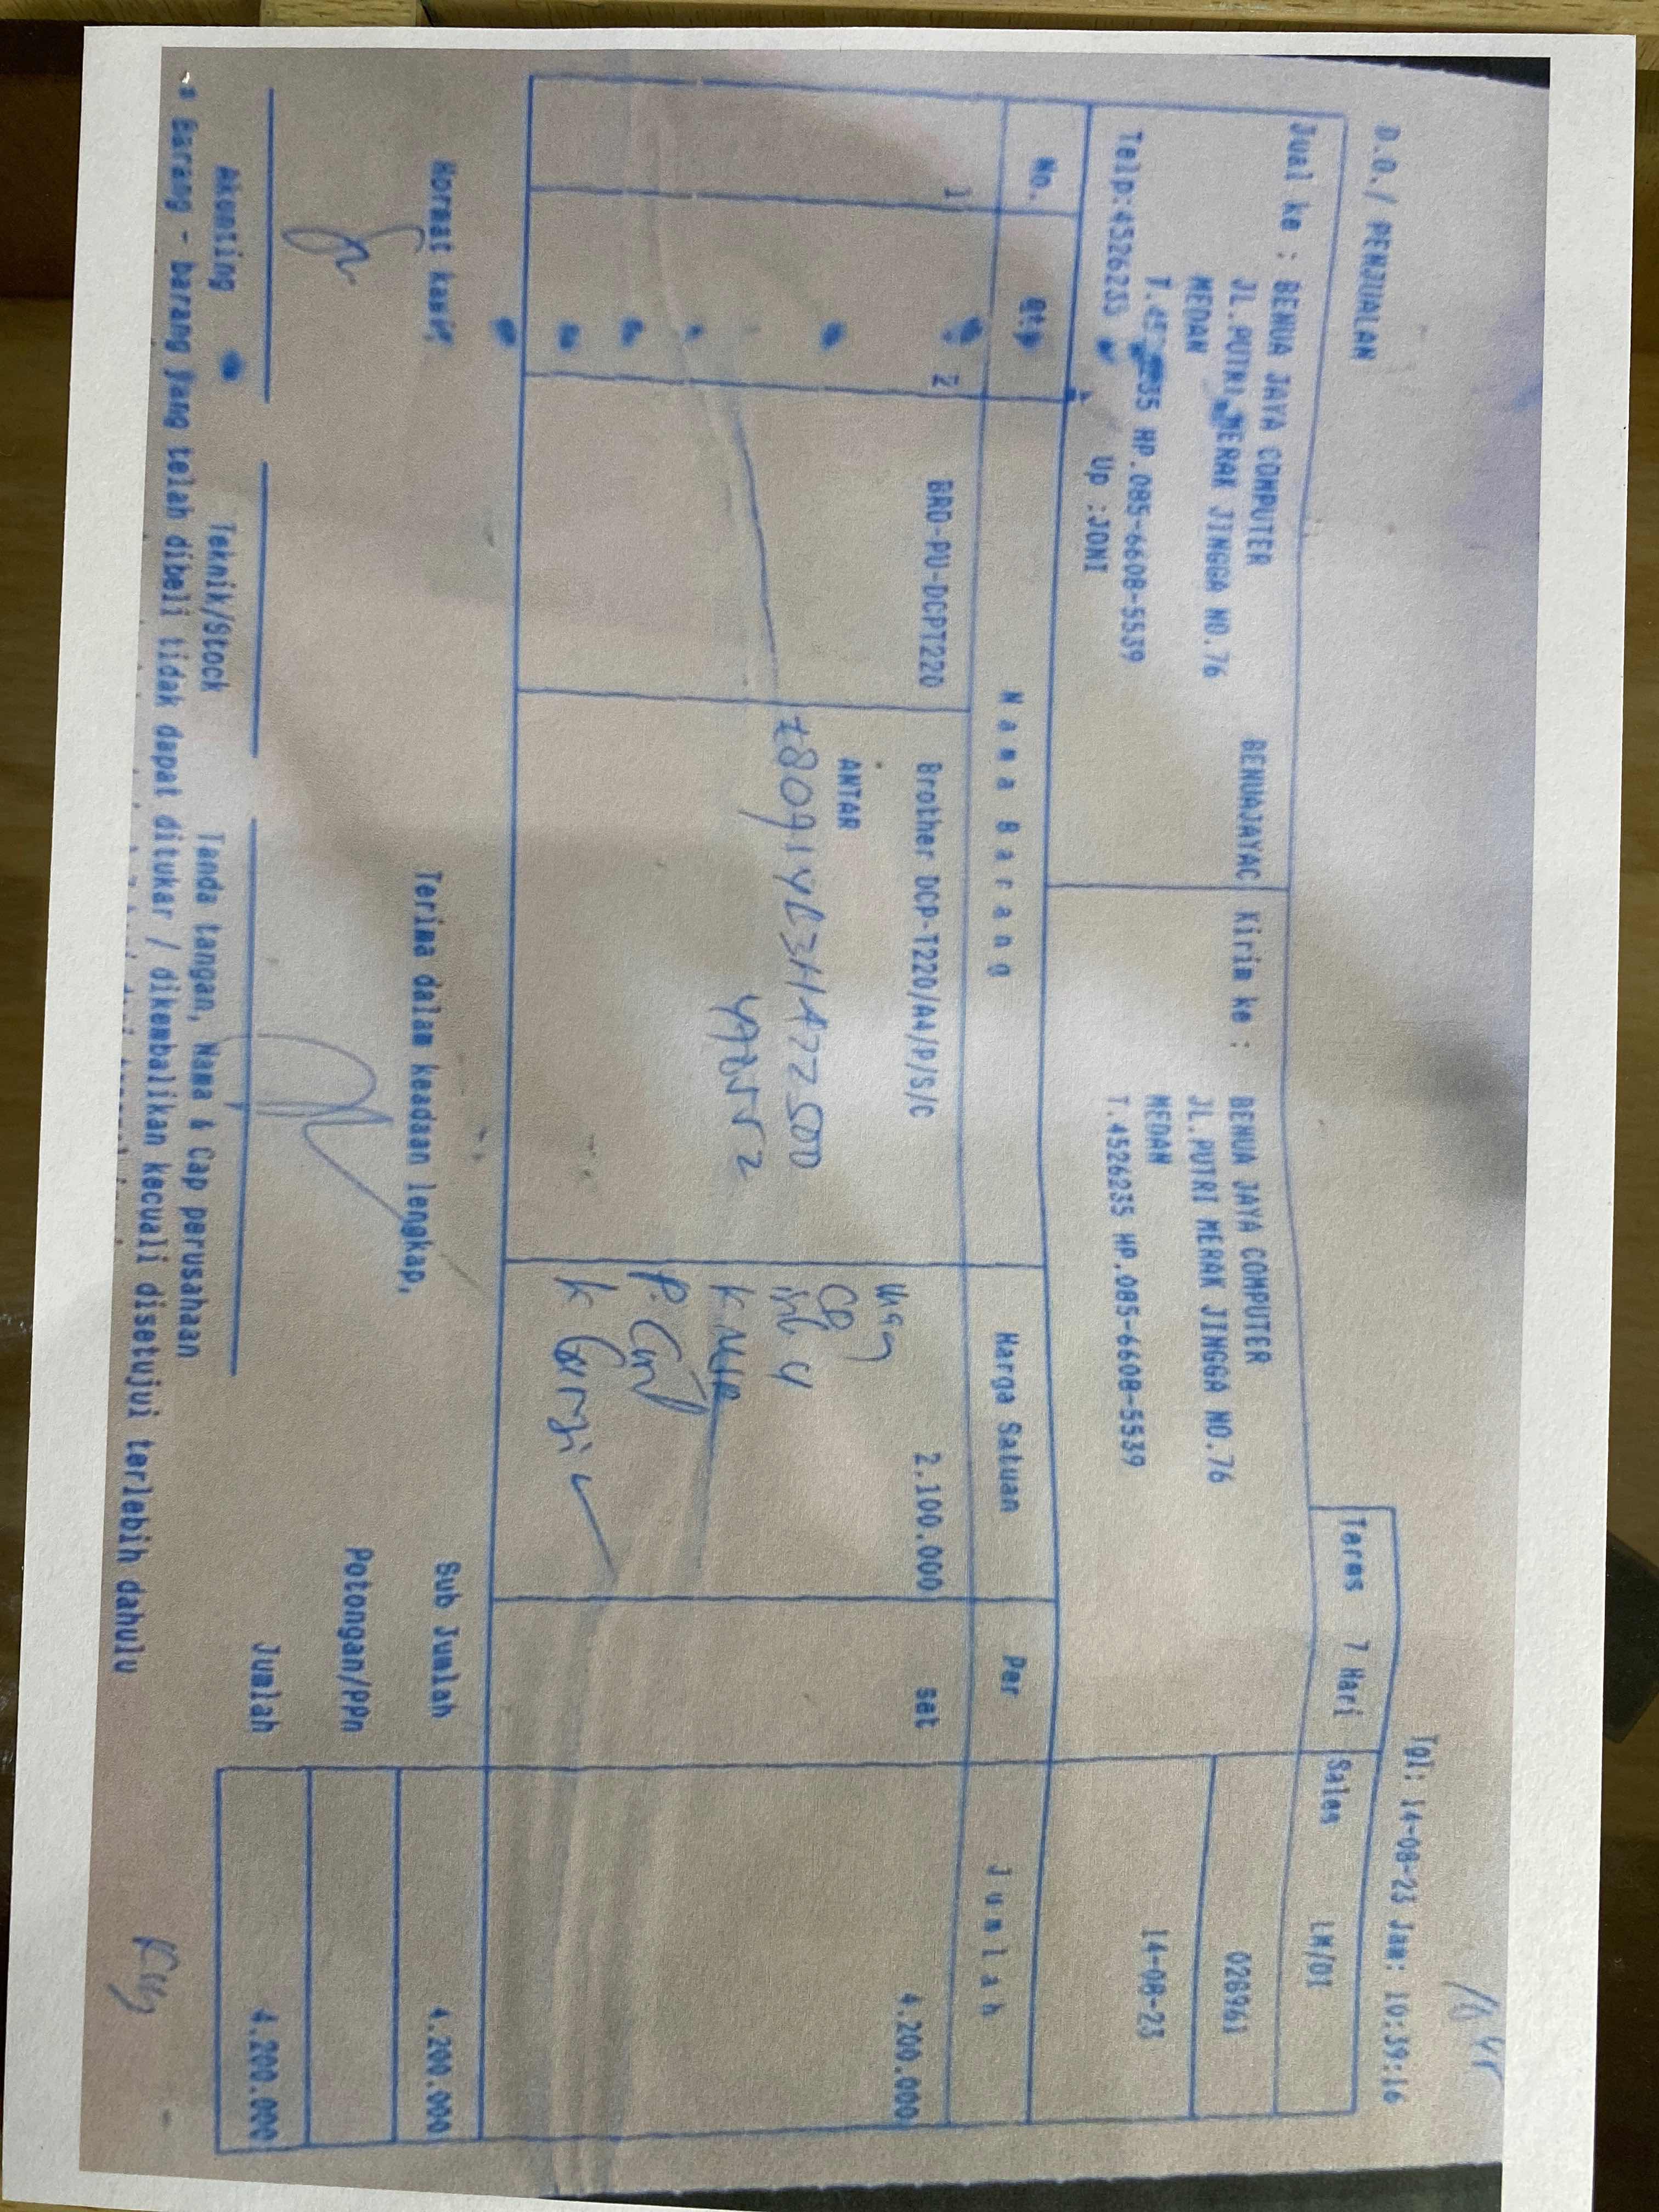 Tgl: 14-08-23 Jam: 10:39:16
D.O./ PENJUALAN
Terms 7 Hari Sales LM/DI
Jual ke : BENUA JAYA COMPUTER BENUAJAYAC Kirim ke : BENUA JAYA COMPUTER 028961
JL.PUTRI MERAK JINGGA NO.76 JL.PUTRI MERAK JINGGA NO.76
MEDAN MEDAN 14-08-23
HP.085-6608-5539 T.4526235 HP.085-6608-5539
Telp:4526235 Up :JONI
No. Qty Nama Barang Harga Satuan Per Jumlah
1 2 BRO-PU-DCPT220 Brother DCP-T220/A4/P/S/C 2.100.000 set 4.200.000
ANTAR
Hormat kami, Terima dalam keadaan lengkap, Sub Jumlah 4.200.000
Potongan/PPn
Jumlah 4.200.000
Akunting Teknik/Stock Tanda tangan, Nama & Cap perusahaan
* Barang - barang yang telah dibeli tidak dapat ditukar / dikembalikan kecuali disetujui terlebih dahulu